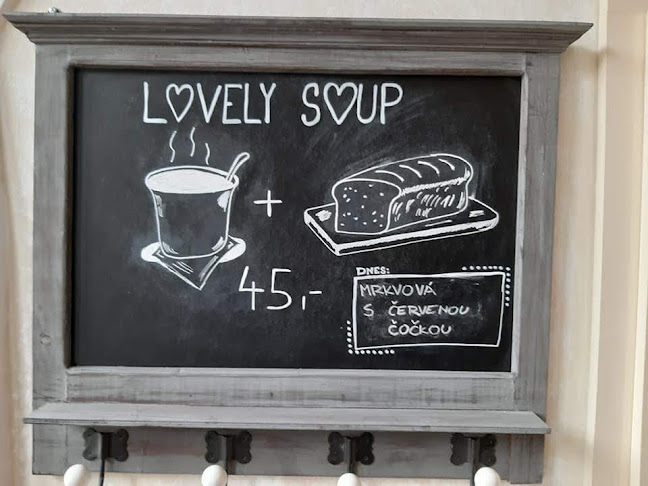 LOVELY SOUP
+
45,-
DNES:
MRKVOVÁ
S ČERVENOU
ČOČKOU